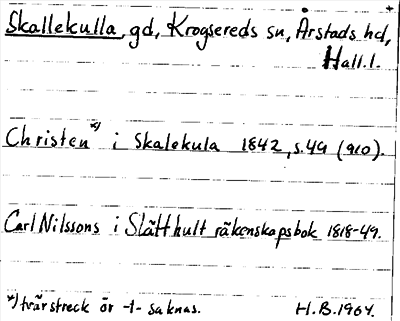 Skallekulla, gd, Krogsereds sn, Årstads hd,
Hall.l.
Christen *) i Skalekula 1842, s. 49 (910).
Carl Nilssons i Slätthult räkenskapsbok 1818-49.
*) tvärstreck ör -t- saknas.
H.B. 1964.